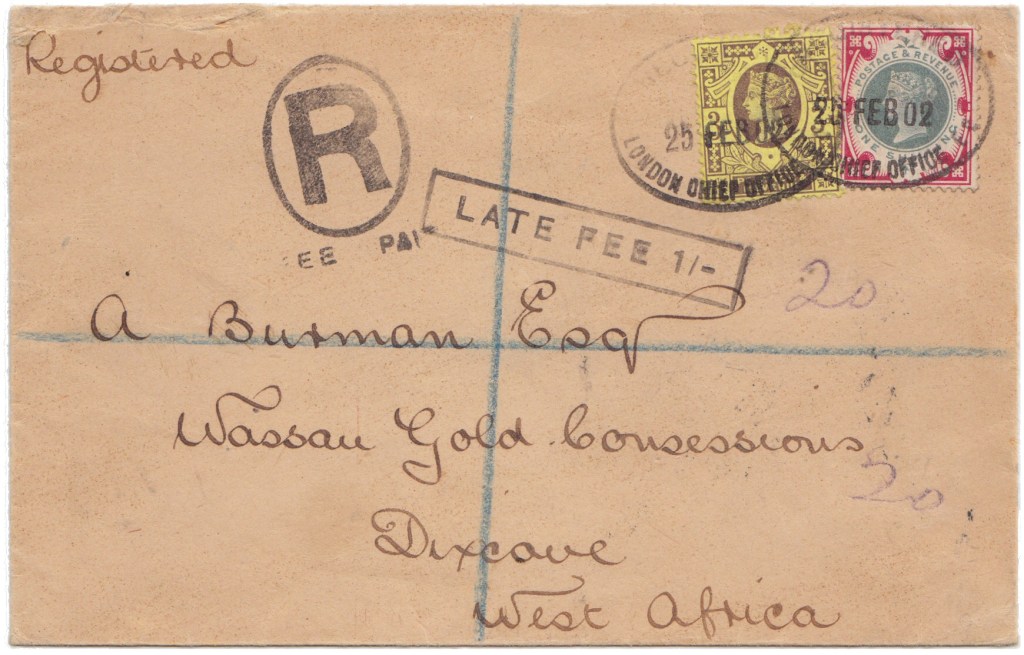 Registered
R
EE PAI
LATE FEE 1/-
25 FEB 02
LONDON CHIEF OFFICE
3 3
POSTAGE & REVENUE
FEB 02
CHIEF OFFICE
ONE
20
A Burman Esq
Wassau Gold Consessions
20
Dixcove
West Africa